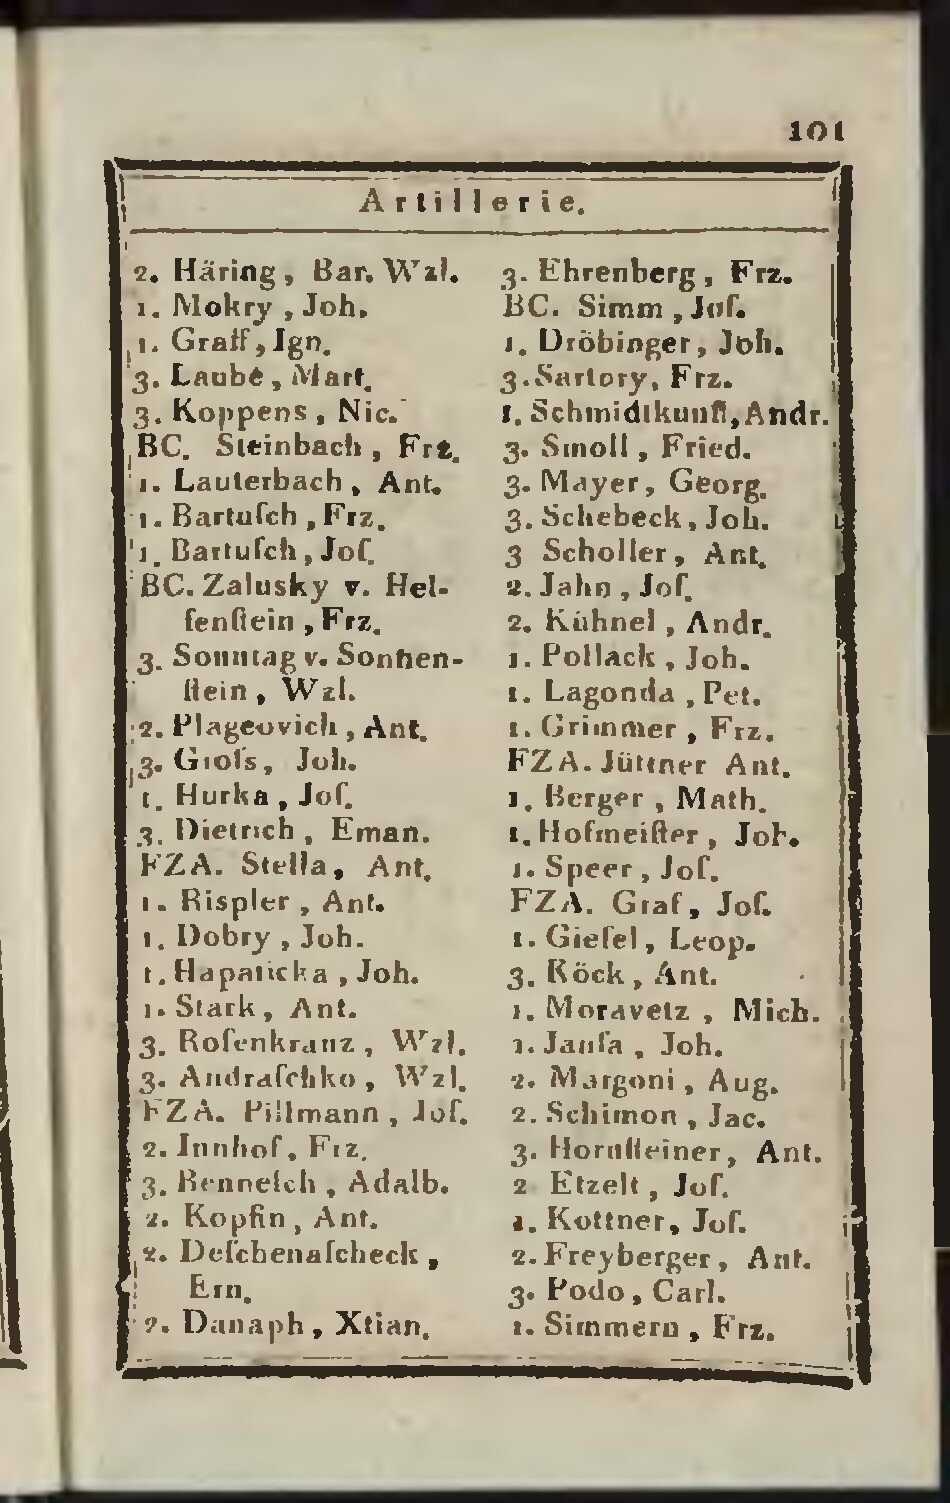 101
Artillerie.
2. Häring, Bar. Wzl.
1. Mokry, Joh.
1. Graff, Ign.
3. Laube, Mart.
3. Koppens, Nic.
BC. Steinbach, Frz.
1. Lauterbach, Ant.
1. Bartuſch, Frz.
1. Bartuſch, Joſ.
BC. Zalusky v. Hel-
fenſtein, Frz.
3. Sonntag v. Sonnen-
ſtein, Wzl.
2. Plageovich, Ant.
3. Groſs, Joh.
1. Hurka, Joſ.
3. Dietrich, Eman.
FZA. Stella, Ant.
1. Rispler, Ant.
1. Dobry, Joh.
1. Hapaticka, Joh.
1. Stark, Ant.
3. Roſenkranz, Wzl.
3. Andraſchko, Wzl.
FZA. Pillmann, Joſ.
2. Innhof, Frz.
3. Renneſch, Adalb.
2. Kopfin, Ant.
2. Deſchenaſcheck,
Ern.
2. Danaph, Xtian.
3. Ehrenberg, Frz.
BC. Simm, Joſ.
1. Dröbinger, Joh.
3. Sartory, Frz.
1. Schmidtkunſt, Andr.
3. Smoll, Fried.
3. Mayer, Georg.
3. Schebeck, Joh.
3 Scholler, Ant.
2. Jahn, Joſ.
2. Kühnel, Andr.
1. Pollack, Joh.
1. Lagonda, Pet.
1. Grimmer, Frz.
FZA. Jüttner Ant.
1. Berger, Math.
1. Hofmeiſter, Joh.
1. Speer, Joſ.
FZA. Graf, Joſ.
1. Gieſel, Leop.
3. Röck, Ant.
1. Moravetz, Mich.
1. Janſa, Joh.
2. Margoni, Aug.
2. Schimon, Jac.
3. Hornſteiner, Ant.
2 Etzelt, Joſ.
1. Kottner, Joſ.
2. Freyberger, Ant.
3. Podo, Carl.
1. Simmern, Frz.